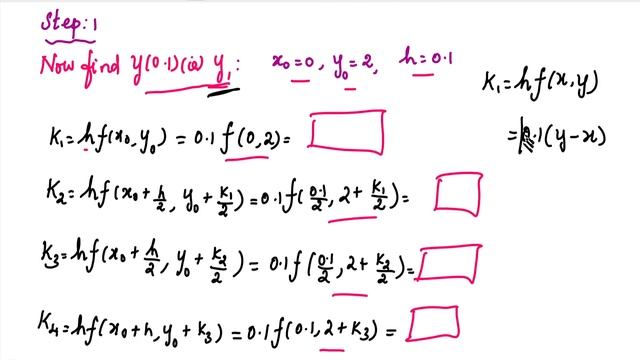 Step: 1
Now find y(0.1) (ie) y₁ : x₀=0, y₀=2, h=0.1
K₁=hf(x,y)
=0.1(y-x)
K₁=hf(x₀,y₀) = 0.1 f(0,2)=
K₂=hf(x₀+h/2, y₀+K₁/2)=0.1f(0.1/2, 2+K₁/2)=
K₃=hf(x₀+h/2, y₀+K₂/2) = 0.1f(0.1/2, 2+K₂/2)=
K₄=hf(x₀+h, y₀+K₃) = 0.1f(0.1, 2+K₃) =